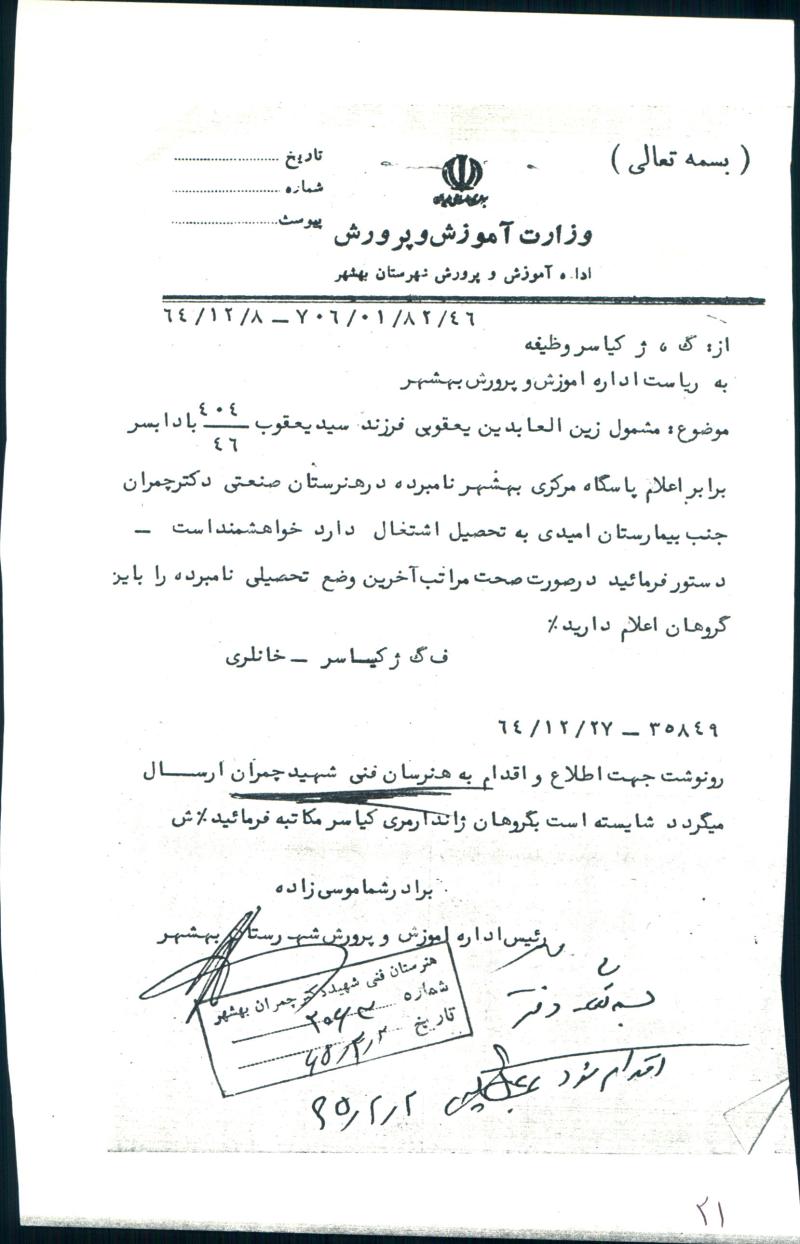 ( بسمه تعالی )
تاریخ
شماره
پیوست
وزارت آموزش و پرورش
اداره آموزش و پرورش شهرستان بهشهر
٧٠٦/٠١/٨٢/٤٦ – ٦٤/١٢/٨
از: گ ، ژ کیاسر وظیفه
به ریاست اداره اموزش و پرورش بهشهر
موضوع: مشمول زین العابدین یعقوبی فرزند سید یعقوب ٤٠٤/٤٦ بادابسر
برابر اعلام پاسگاه مرکزی بهشهر نامبرده درهنرستان صنعتی دکترچمران
جنب بیمارستان امیدی به تحصیل اشتغال دارد خواهشمنداست –
دستور فرمائید درصورت صحت مراتب آخرین وضع تحصیلی نامبرده را باین
گروهان اعلام دارید٪
ف گ ژ کیاسر – خانلری
٣٥٨٤٩ – ٦٤/١٢/٢٧
رونوشت جهت اطلاع و اقدام به هنرسان فنی شهیدچمران ارسال
میگردد شایسته است بگروهان ژاندارمری کیاسر مکاتبه فرمائید٪ش
برادرشما موسی زاده
رئیس اداره اموزش و پرورش شهرستان بهشهر
هنرستان فنی شهیددکترچمران بهشهر
شماره
تاریخ ٦٥/٢/٢
دفتر
اقدام شود
٦٥/٢/٢
٢١